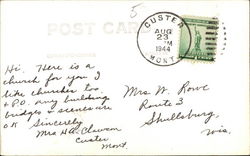 5
POST CARD
CUSTER
AUG
23
PM
1944
MONT.
Hi. Here is a
church for you I
like churches too
+ P.O. any building
bridges + scenes are
OK Sincerely
Mrs H A Clawson
Custer
Mont.
Mrs W. Rowe
Route 3
Shullsburg,
Wis.